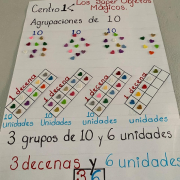 Centro 1
Los Super Objetos
Mágicos.
Agrupaciones de 10
10 10 10
decena decena decena
10 unidades
10 unidades
10 unidades
6 unidades
3 grupos de 10 y 6 unidades
3 decenas y 6 unidades
36